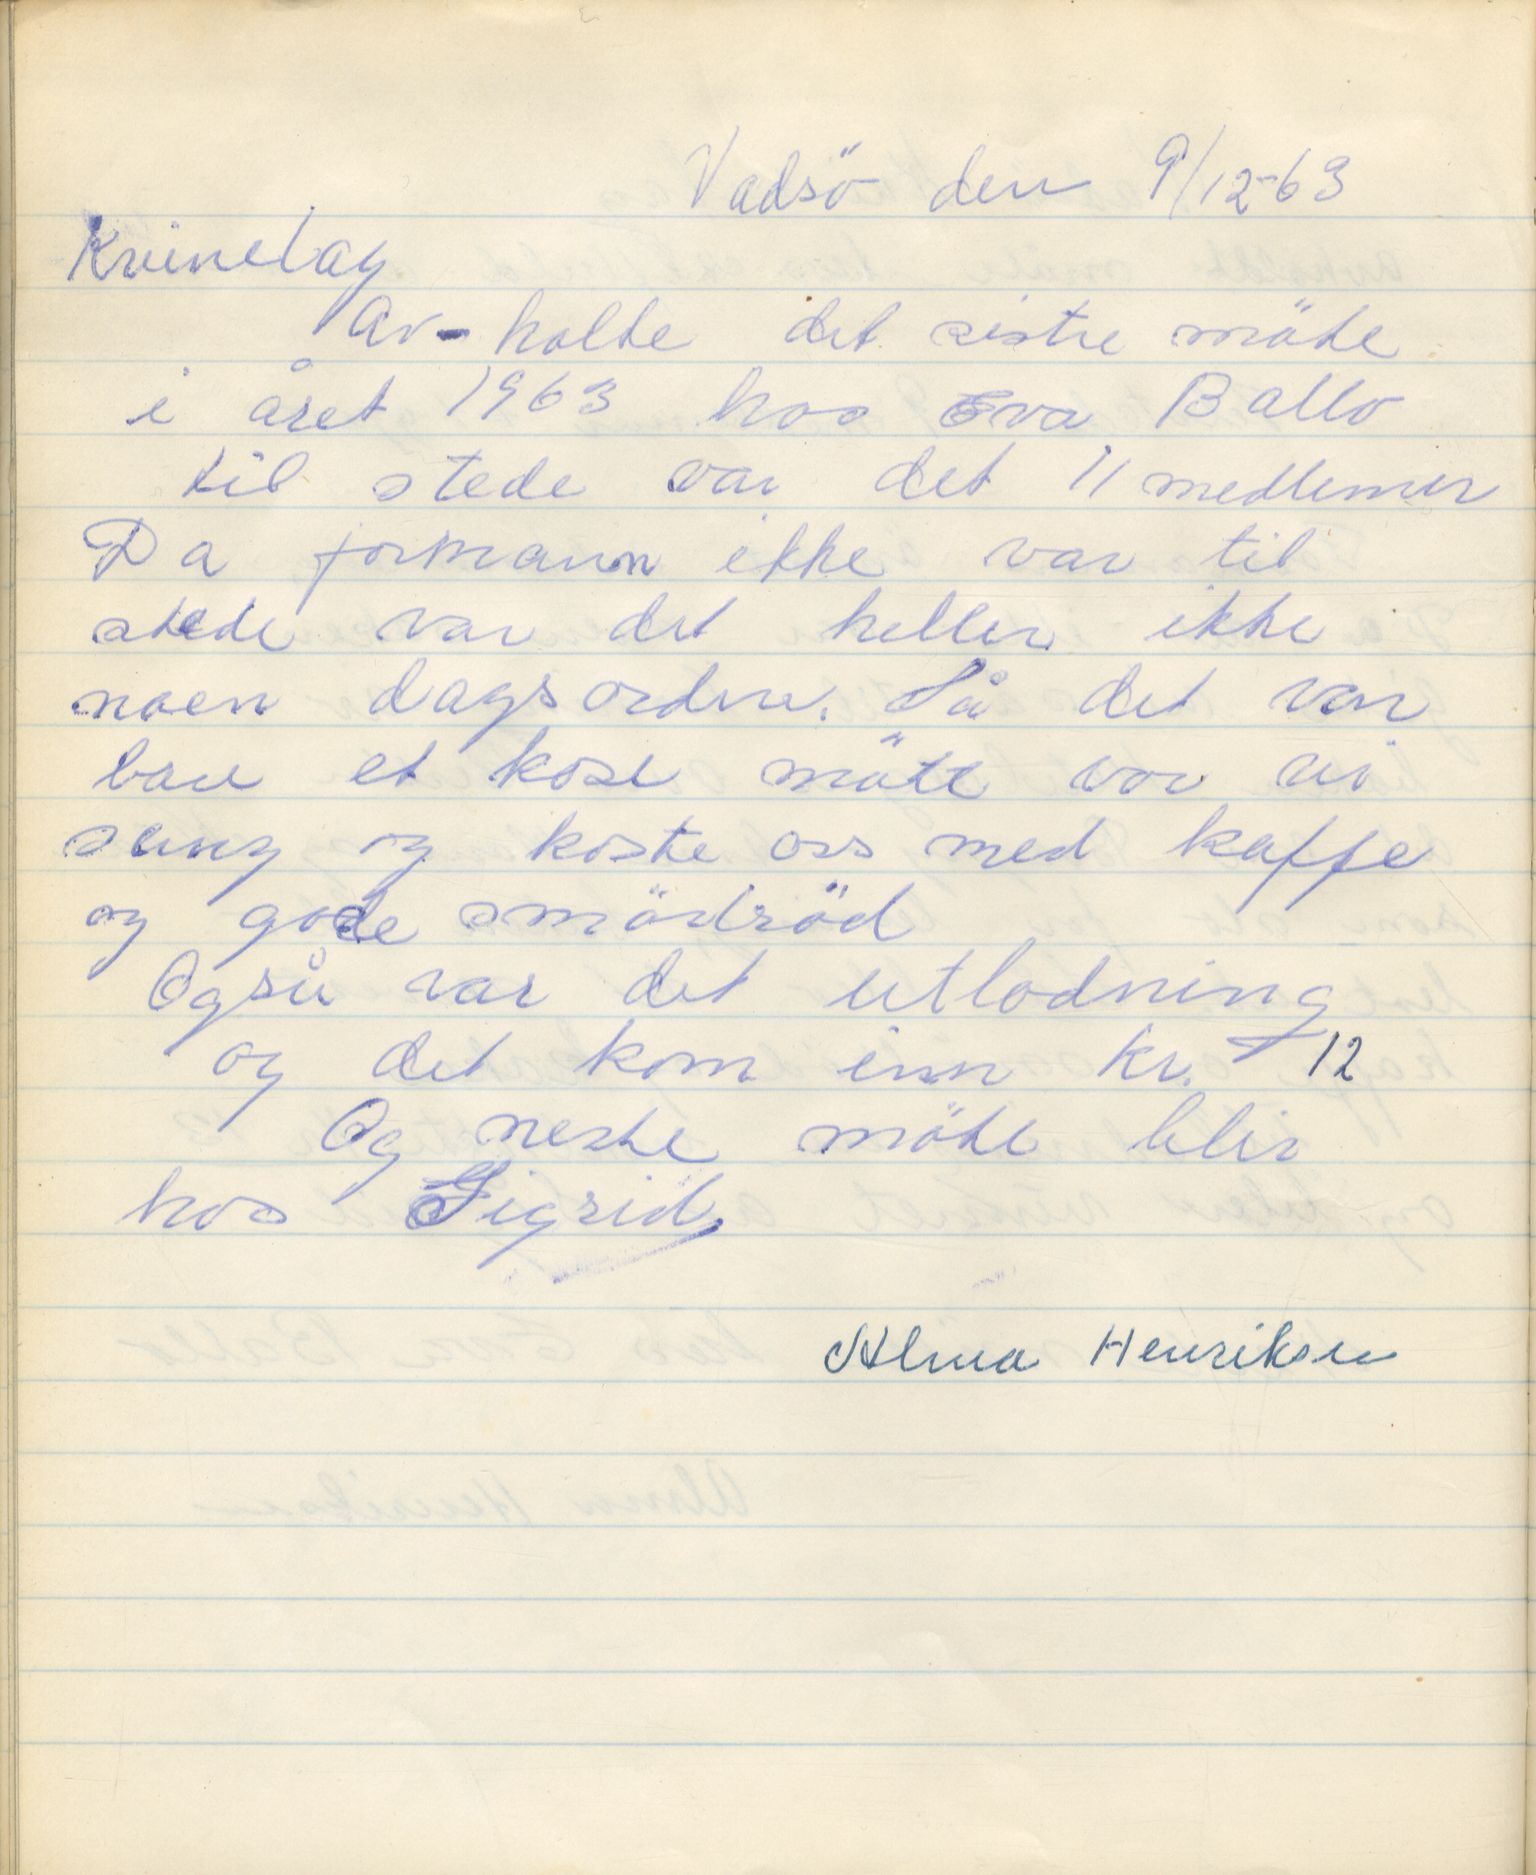 Vadsö den 9/12-63
Kvinelag
Av-holte det sistre möte
i året 1963 hos Eva Ballo
til stede var det 11 medlemer
Da formann ikke var til
stede var det heller ikke
noen dagsorden. Så det var
bare et kose möte vor vi
sung og koste oss med kaffe
og gode smörbröd
Også var det utlodning
og det kom inn kr. 12
Og neste möte blir
hos Sigrid,
Alma Henriksen